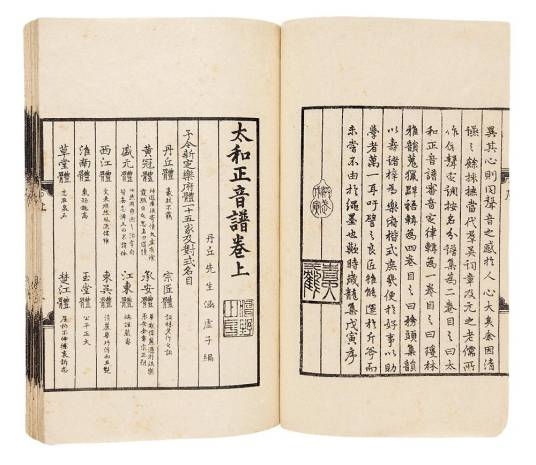 異其心則同聲音之感於人心大矣余因清
讌之餘採摭當代羣英詞章及元之老儒所
作依聲定調按名分譜集為二卷目之曰太
和正音譜審音定律輯為一卷目之曰瓊林
雅韻蒐獵羣語輯為四卷目之曰務頭集韻
以壽諸梓為樂府楷式庶幾便於好事以助
學者萬一耳吁譬之良匠雖能運於斤斧而
未嘗不由於繩墨也歟時歲龍集戊寅序
太和正音譜卷上
丹丘先生涵虛子編
予今新定樂府體一十五家及對式名目
丹丘體 豪放不羈 宗匠體 詞林老作之詞
黃冠體 神遊廣漠寄情太虛有飡霞服日之思名曰道情 承安體 華觀偉麗過於泆樂承安金章宗正朔
盛元體 快然有雍熙之治字句皆無忌憚又曰不諱體 江東體 端謹嚴密
西江體 文采煥然風流儒雅 東吳體 清麗華巧浮而且艷
淮南體 氣勁趣高 玉堂體 公平正大
草堂體 志在泉石 楚江體 屈抑不伸攄衷訴志